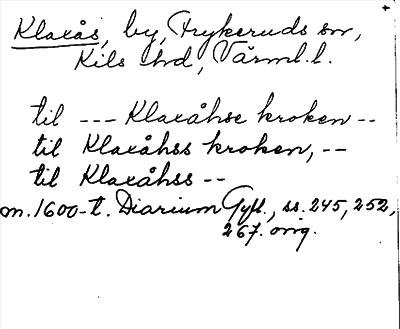 Klaxås, by, Frykeruds sn,
Kils hd, Värml. l.
til --- Klaxåhse kroken --
til Klaxåhss kroken, --
til Klaxåhss --
m. 1600-t. Diarium Gyll., ss. 245, 252,
267. orig.